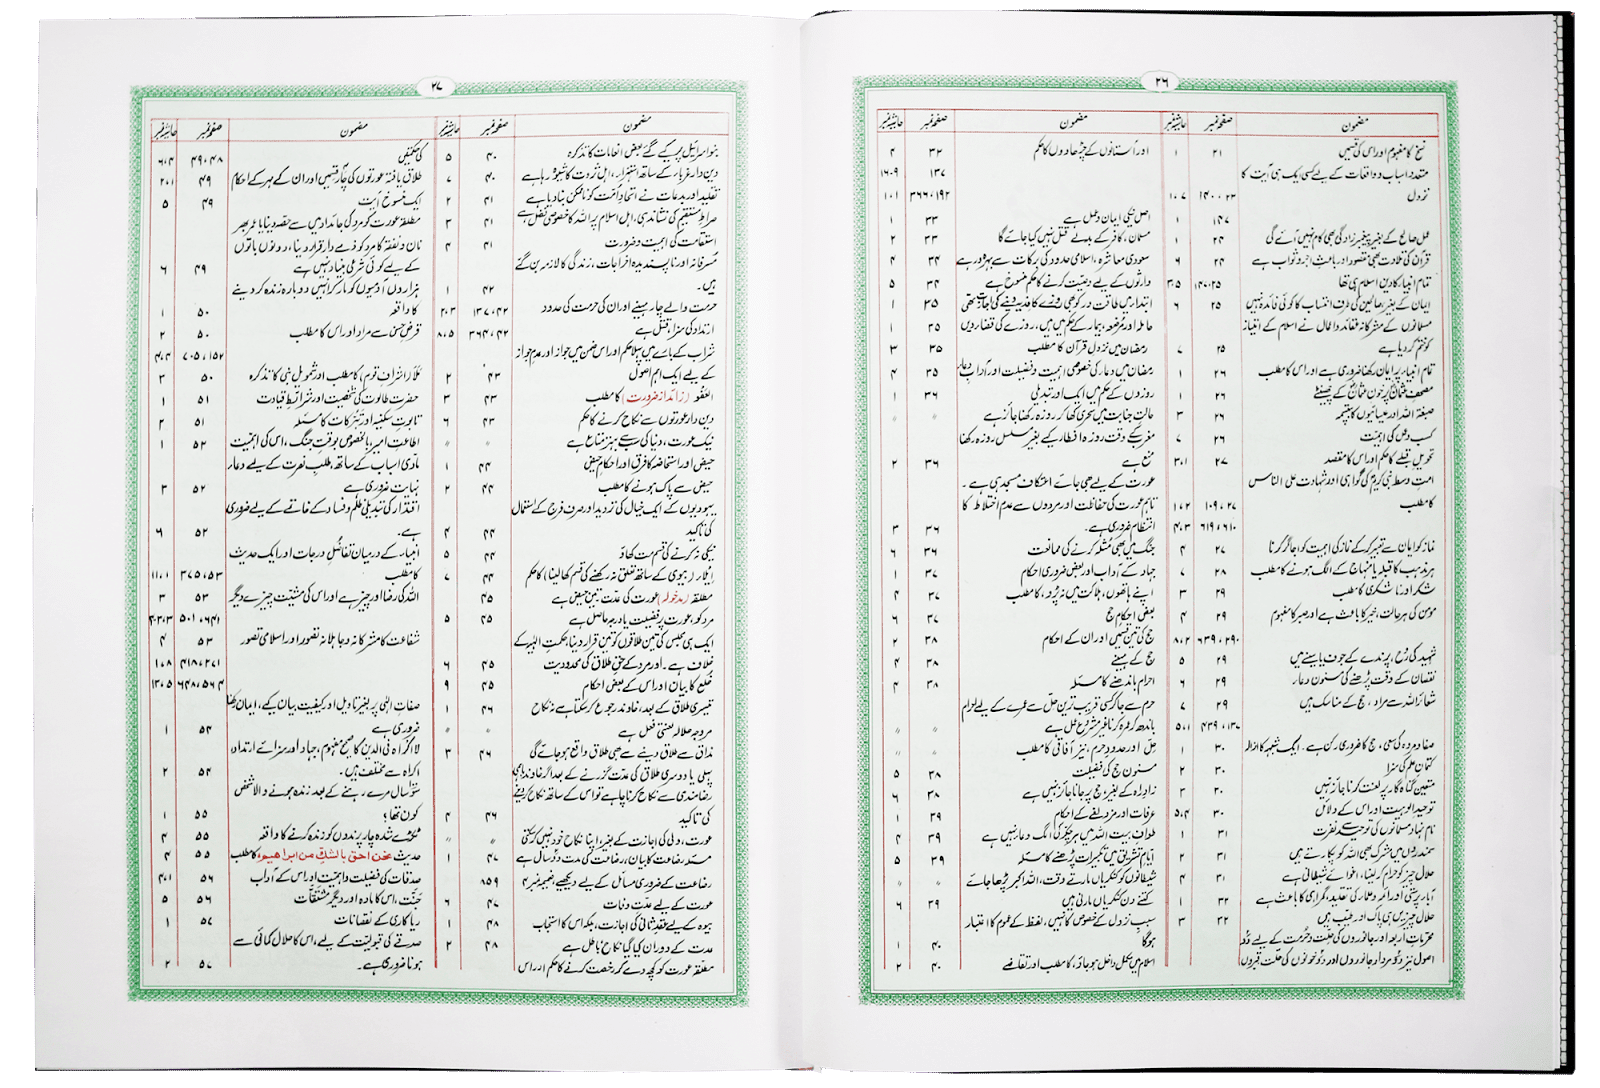 ۲۶
مضمون صفحہ نمبر حاشیہ نمبر
نسخ کا مفہوم اور اس کی قسمیں ۲۱ ۱
متعدد اسباب و واقعات کے لیے کسی ایک ہی آیت کا
نزول ۲۳، ۱۴۰ ۱۰،۷
۱۴۷ ۱
عمل صالح کے بغیر پیغمبر زادگی بھی کام نہیں آئے گی ۲۴ ۱
قرآن کی تلاوت بھی مقصود اور باعثِ اجر و ثواب ہے ۲۴ ۶
تمام انبیاء کا دین اسلام ہی تھا ۲۵، ۱۴۰ ۳،۵
ایمان کے بغیر صالحین کی طرف انتساب کا کوئی فائدہ نہیں ۲۵ ۶
مسلمانوں کے مشرکانہ عقائد و اعمال نے اسلام کے امتیاز
کو ختم کر دیا ہے ۲۵ ۷
تمام انبیاء پر ایمان رکھنا ضروری ہے اور اس کا مطلب ۲۶ ۱
مصحف عثمانؓ پر خون عثمانؓ کے چھینٹے ۲۶ ۱
صبغۃ اللہ اور عیسائیوں کا بپتسمہ ۲۶ ۳
کسب و عمل کی اہمیت ۲۶ ۷
تحویل قبلے کا حکم اور اس کا مقصد ۲۷ ۳،۱
امتِ وسط، نبی کریمؐ کی گواہی اور شہادت علی الناس
کا مطلب ۲۷، ۱۰۹ ۱،۲
۶۱۰، ۶۱۹ ۴،۳
نماز کو ایمان سے تعبیر کر کے نماز کی اہمیت کو اجاگر کرنا ۲۷ ۴
ہر مذہب کا قبلہ یا منہاج کے الگ ہونے کا مطلب ۲۸ ۷
شکر اور ناشکری کا مطلب ۲۹ ۳
مومن کی ہر حالت، خیر کا باعث ہے اور صبر کا مفہوم ۲۹ ۴
۲۹۰، ۶۳۹ ۸،۲
شہید کی روح، پرندے کے جوف یا سینے میں ۲۹ ۵
نقصان کے وقت پڑھنے کی مسنون دعا ۲۹ ۶
شعائر اللہ سے مراد، حج کے مناسک ہیں ۲۹ ۷
۱۳۰، ۴۳۹ ۵،۱
صفا و مروہ کی سعی، حج کا ضروری رکن ہے۔ ایک شبہے کا ازالہ ۳۰ ۱
کتمانِ علم کی سزا ۳۰ ۲
متعین گناہ گار پر لعنت کرنا جائز نہیں ۳۰ ۳
توحید الوہیت اور اس کے دلائل ۳۰ ۵،۴
نام نہاد مسلمانوں کی توحید سے نفرت ۳۱ ۱
سمندروں میں مشرک بھی اللہ کو پکارتے ہیں ۳۱ ۲
حلال چیز کو حرام کر لینا، اغوائے شیطانی ہے ۳۱ ۴
آباء پرستی اور ائمہ و علماء کی تقلید، گمراہی کا باعث ہے ۳۲ ۱
حلال چیزیں ہی پاک اور طیب ہیں ۳۲ ۳
محرماتِ اربعہ اور جانوروں کی حلت و حرمت کے لیے دو
اصول نیز دو مردار جانوروں اور دو خونوں کی حلت، قبروں
مضمون صفحہ نمبر حاشیہ نمبر
اور آستانوں کے چڑھاووں کا حکم ۳۲ ۴
۱۳۷ ۱۶،۹
۱۹۲، ۳۶۶ ۱۰،۱
اصل نیکی ایمان و عمل ہے ۳۳ ۱
مسلمان، کافر کے بدلے قتل نہیں کیا جائے گا ۳۳ ۲
سعودی معاشرہ، اسلامی حدود کی برکات سے بہرہ ور ہے ۳۴ ۴
وارثوں کے لیے وصیت کرنے کا حکم منسوخ ہے ۳۴ ۵
ابتداء میں طاقت ور کو بھی روزے کا فدیہ دینے کی اجازت تھی ۳۵ ۱
حاملہ اور مرضعہ، بیمار کے حکم میں ہیں، روزے کی قضا دیں ۳۵ ۱
رمضان میں نزولِ قرآن کا مطلب ۳۵ ۳
رمضان میں دعاء کی خصوصی اہمیت و فضیلت اور آدابِ دعاء ۳۵ ۴
روزوں کے حکم میں ایک اور تبدیلی ۳۶ ۱
حالتِ جنابت میں سحری کھا کر روزہ رکھنا جائز ہے ״ ״
مغرب کے وقت روزہ افطار کیے بغیر مسلسل روزہ رکھنا
منع ہے ۳۶ ۲
عورت کے لیے بھی جائے اعتکاف مسجد ہی ہے۔
تاہم عورت کی حفاظت اور مردوں سے عدم اختلاط کا
انتظام ضروری ہے۔ ۳۶ ۳
جنگ میں بھی مُثلہ کرنے کی ممانعت ۳۶ ۶
جہاد کے آداب اور بعض ضروری احکام ۳۷ ۱
اپنے ہاتھوں، ہلاکت میں نہ پڑو، کا مطلب ۳۷ ۴
بعض احکامِ حج ۳۷ ۶
حج کی تین قسمیں اور ان کے احکام ۳۸ ۲
حج کے مہینے ۳۸ ۴
احرام باندھنے کا مسئلہ ۳۸ ۴
حرم سے جا کر کسی قریب ترین حل سے عمرے کے لیے احرام
باندھ کر عمرہ کرنا غیر مشروع عمل ہے ״ ״
حل اور حدودِ حرم، نیز آفاقی کا مطلب ״ ״
مسنون حج کی فضیلت ۳۸ ۵
زادِ راہ کے بغیر حج پر جانا جائز نہیں ہے ۳۸ ۶
عرفات اور مزدلفے کے احکام ۳۹ ۱
طوافِ بیت اللہ میں ہر چکر کی الگ دعاء نہیں ہے ۳۹ ۴
ایامِ تشریق میں تکبیرات پڑھنے کا مسئلہ ۳۹ ۵
شیطانوں کو کنکریاں مارتے وقت، اللہ اکبر پڑھا جائے ״ ״
کتنے دن کنکریاں مارنی ہیں ۳۹ ۶
سببِ نزول کے خصوص کا نہیں، لفظ کے عموم کا اعتبار
ہوگا ۴۰ ۱
اسلام میں مکمل داخل ہو جاؤ، کا مطلب اور تقاضے ۴۰ ۲
۲۷
مضمون صفحہ نمبر حاشیہ نمبر
بنو اسرائیل پر کیے گئے بعض انعامات کا تذکرہ ۴۰ ۵
دین دار غرباء کے ساتھ استہزاء، اہل ثروت کا شیوہ رہا ہے ۴۰ ۷
تقلید اور بدعات نے اتحادِ امت کو ناممکن بنا دیا ہے ۴۱ ۲
صراطِ مستقیم کی نشاندہی، اہل اسلام پر اللہ کا خصوصی فضل ہے ۴۱ ۳
استقامت کی اہمیت و ضرورت ۴۱ ۴
مُسرفانہ اور ناپسندیدہ اخراجات، زندگی کا لازمہ بن گئے
ہیں۔ ۴۲ ۱
حرمت والے چار مہینے اور ان کی حرمت کی حدود ۴۲، ۱۳۷ ۲،۳
ارتداد کی سزا، قتل ہے ۴۲، ۳۶۴ ۸،۵
شراب کے بارے میں پہلا حکم اور اس ضمن میں جواز اور عدم جواز
کے لیے ایک اہم اصول ۴۳ ۲
العفو (زائد از ضرورت) کا مطلب ۴۳ ۳
دین دار عورتوں سے نکاح کرنے کا حکم ۴۳ ۶
نیک عورت، دنیا کی سب سے بہتر متاع ہے ״ ״
حیض اور استحاضہ کا فرق اور احکامِ حیض ۴۴ ۱
حیض سے پاک ہونے کا مطلب ۴۴ ۲
یہودیوں کے ایک خیال کی تردید اور صرف فرج کے استعمال
کی تاکید ۴۴ ۴
نیکی نہ کرنے کی قسم مت کھاؤ ۴۴ ۵
اِیلاء (بیوی کے ساتھ تعلق نہ رکھنے کی قسم کھا لینا) کا حکم ۴۴ ۷
مطلقہ (مدخولہ) عورت کی عدت تین حیض ہے ۴۵
مرد کو، عورت پر فضیلت یا درجہ حاصل ہے ۴۵ ۵
ایک ہی مجلس کی تین طلاقوں کو تین قرار دینا، حکمتِ الٰہیہ کے
خلاف ہے۔ اور مرد کے حقِ طلاق کی محدودیت ۴۵ ۶
خلع کا بیان اور اس کے بعض احکام ۴۵ ۹
تیسری طلاق کے بعد، خاوند رجوع کر سکتا ہے نہ نکاح ۴۶ ۱
مروجہ حلالہ لعنتی فعل ہے ״ ״
مذاق سے طلاق دینے سے بھی طلاق واقع ہو جائے گی ۴۶ ۳
پہلی یا دوسری طلاق کی عدت گزرنے کے بعد اگر خاوند باہمی
رضامندی سے نکاح کرنا چاہے تو اس کے ساتھ نکاح کر دینے
کی تاکید ۴۶ ۴
عورت، ولی کی اجازت کے بغیر، اپنا نکاح خود نہیں کر سکتی ״ ״
مسئلہ رضاعت کا بیان، رضاعت کی مدت دو سال ہے ۴۷ ۱
رضاعت کے ضروری مسائل کے لیے دیکھیے ضمیمہ نمبر ۴ ۸۵۹
عورت کے لیے عدتِ وفات ۴۷ ۶
بیوہ کے لیے عقدِ ثانی کی اجازت، بلکہ اس کا استحباب ۴۸ ۱
عدت کے دوران کیا گیا نکاح باطل ہے ۴۸ ۲
مطلقہ عورت کو کچھ دے کر رخصت کرنے کا حکم اور اس
مضمون صفحہ نمبر حاشیہ نمبر
کی حکمتیں ۴۸، ۴۹ ۶،۴
طلاق یافتہ عورتوں کی چار قسمیں اور ان کے مہر کے احکام ۴۹ ۲،۱
ایک منسوخ آیت ۴۹ ۵
مطلقہ عورت کو مرد کی جائداد میں سے حصہ دینا یا عمر بھر
نان و نفقہ کا مرد کو ذمے دار قرار دینا، دونوں باتوں
کے لیے کوئی شرعی بنیاد نہیں ہے ۴۹ ۶
ہزاروں آدمیوں کو مار کر انہیں دوبارہ زندہ کر دینے
کا واقعہ ۵۰ ۱
قرضِ حسن سے مراد اور اس کا مطلب ۵۰ ۲
۱۵۲، ۷۰۵ ۴،۴
مَلَأ (اشرافِ قوم) کا مطلب اور شمویل نبی کا تذکرہ ۵۰ ۳
حضرت طالوت کی شخصیت اور شرائطِ قیادت ۵۱ ۱
تابوت سکینہ اور تبرکات کا مسئلہ ۵۱ ۲
اطاعتِ امیر، بالخصوص بوقتِ جنگ، اس کی اہمیت ۵۲ ۱
مادی اسباب کے ساتھ، طلبِ نصرت کے لیے دعاء
نہایت ضروری ہے ۵۲ ۳
اقتدار کی تبدیلی ظلم و فساد کے خاتمے کے لیے ضروری
ہے۔ ۵۲ ۶
انبیاء کے درمیان تفاضُلِ درجات اور ایک حدیث
کا مطلب ۵۳، ۳۷۵ ۱،۱۱
اللہ کی رضا اور چیز ہے اور اس کی مشیت چیزے دیگر ۵۳ ۳
۶۴۱، ۵۰۱ ۳،۳،۴
شفاعت کا مشرکانہ و جاہلانہ تصور اور اسلامی تصور ۵۳ ۴
۲۷۱، ۴۱۸ ۸،۱۰
۵۶۴، ۶۴۸ ۵،۱۳
صفاتِ الٰہی پر بغیر تاویل اور کیفیت بیان کیے، ایمان رکھنا
ضروری ہے ۵۴ ۱
لا اکراہ فی الدین کا صحیح مفہوم، جہاد اور سزائے ارتداد،
اکراہ سے مختلف ہیں۔ ۵۴ ۲
سو سال مرے رہنے کے بعد زندہ ہونے والا شخص
کون تھا؟ ۵۵ ۱
ٹکڑے شدہ چار پرندوں کو زندہ کرنے کا واقعہ ۵۵ ۴
حدیث نحن احق بالشک من ابراھیم، کا مطلب ۵۵ ۴
صدقات کی فضیلت و اہمیت اور اس کے آداب ۵۶ ۴،۱
جَنَّت، اس کا مادہ اور دیگر مشتقات ۵۶ ۵
ریاکاری کے نقصانات ۵۷ ۱
صدقے کی قبولیت کے لیے، اس کا حلال کمائی سے
ہونا ضروری ہے۔ ۵۷ ۲